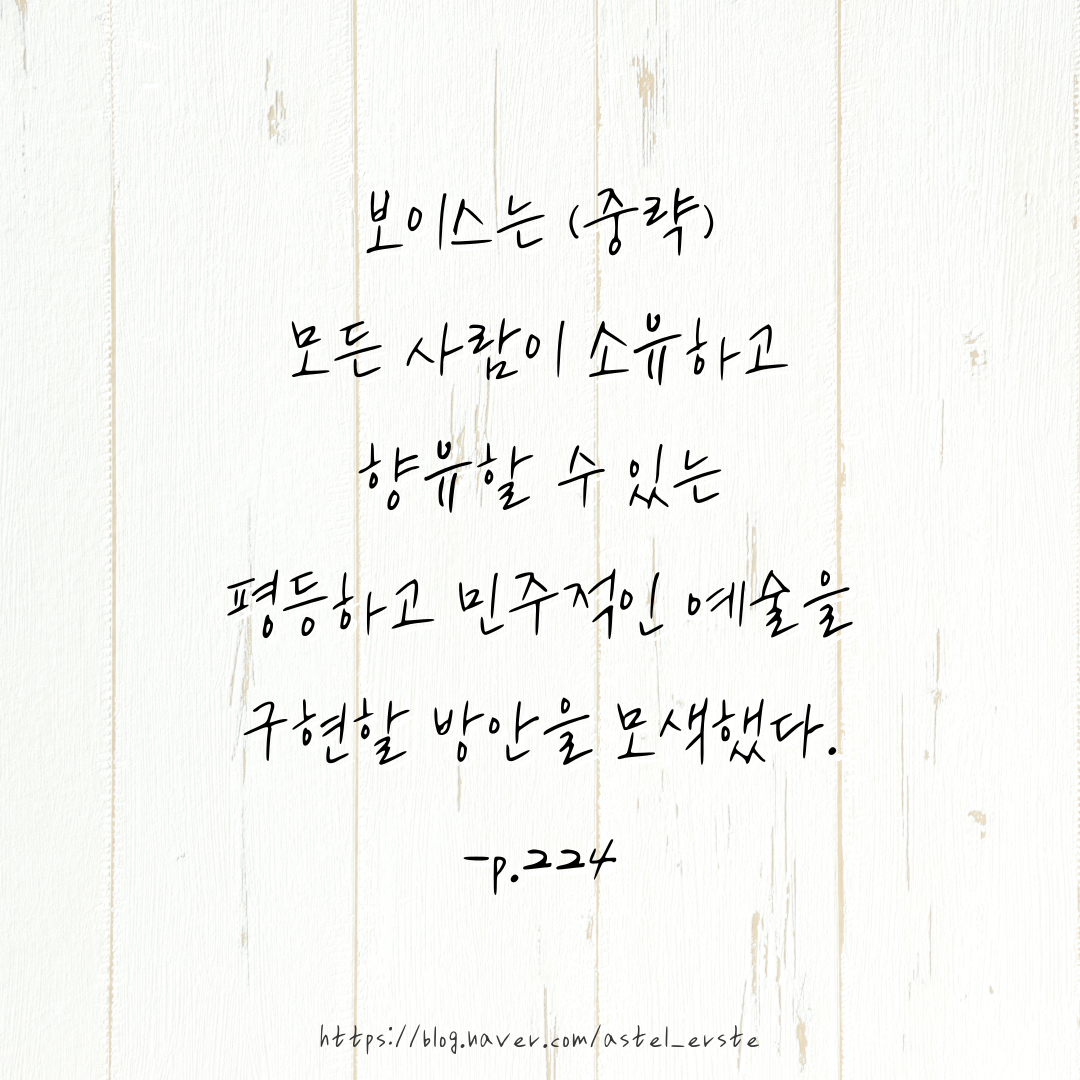 보이스는 (중략)
모든 사람이 소유하고
향유할 수 있는
평등하고 민주적인 예술을
구현할 방안을 모색했다.
-p.224
https://blog.naver.com/astel_erste